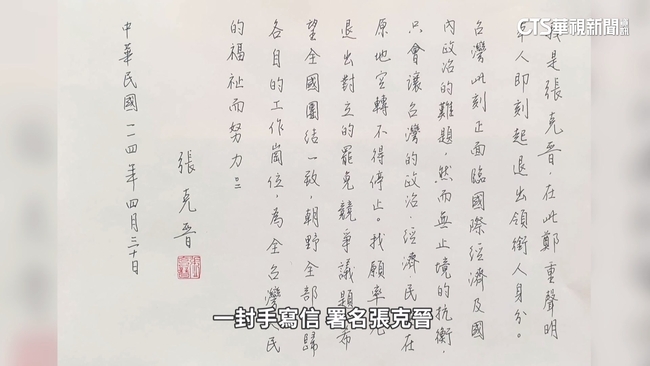 CTS華視新聞
我是張克晉,在此鄭重聲明
本人即刻起退出領銜人身分。
台灣此刻正面臨國際經濟及國
內政治的難題,然而無止境的抗衡,
只會讓台灣的政治,經濟,民在
原地空轉不得停止。我願率
退出對立的罷免競爭議題,希
望全國團結一致,朝野全部歸
各自的工作崗位,為全台灣民
的福祉而努力。
張克晉
中華民國一一四年四月三十日
一封手寫信 署名張克晉